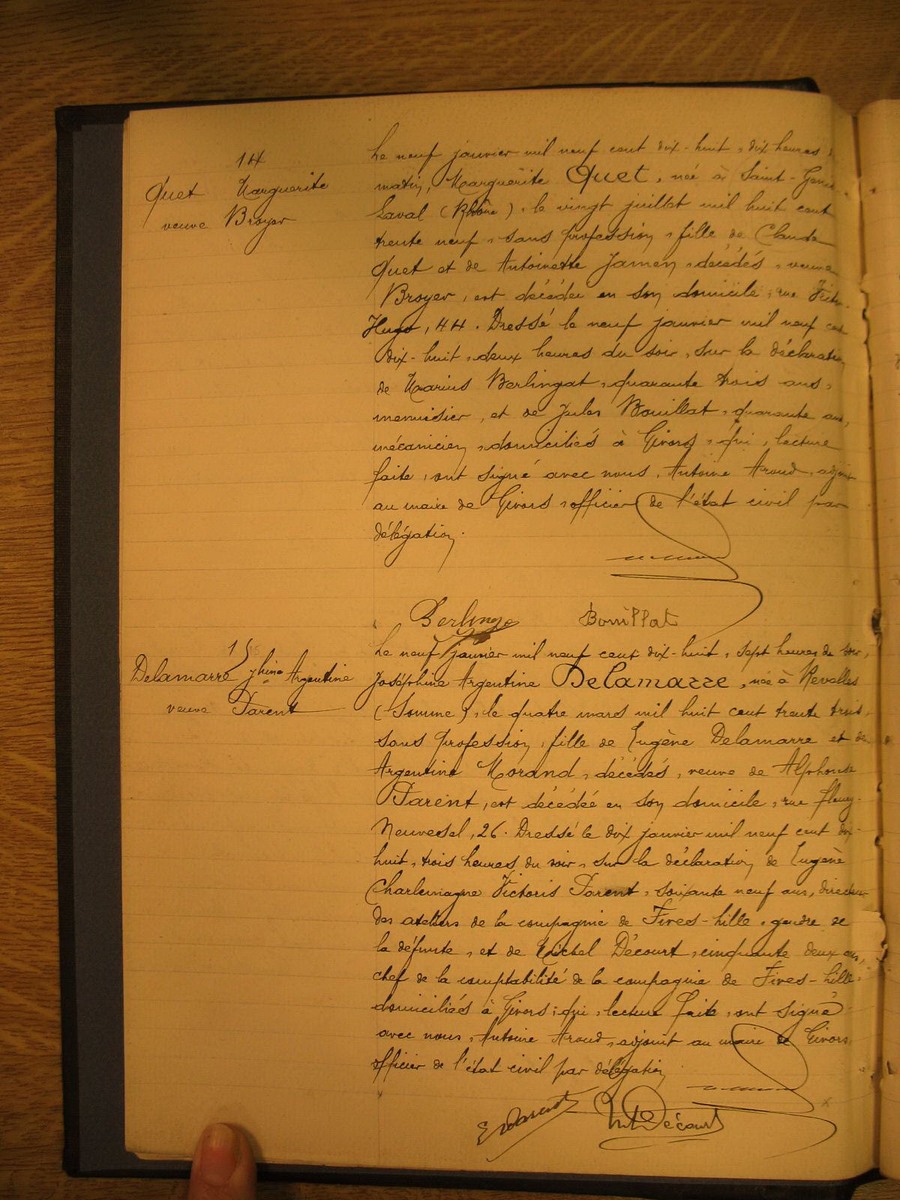 14
Quet Marguerite
veuve Broyer
Le neuf janvier mil neuf cent dix-huit, dix heures
matin, Marguerite Quet, née à Saint-Genis
Laval (Rhône), le vingt juillet mil huit cent
trente neuf, sans profession, fille de Claude
Quet et de Antoinette Jamen, décédés, veuve
Broyer, est décédée en son domicile, rue Victor
Hugo, 44. Dressé le neuf janvier mil neuf cent
dix-huit, deux heures du soir, sur la déclaration
de Marius Berlingat, quarante trois ans,
menuisier, et de Jules Bouillat, quarante ans,
mécanicien, domiciliés à Givors, qui, lecture
faite, ont signé avec nous, Antoine Aroud, adjoint
au maire de Givors, officier de l'état civil par
délégation.
Bouillat
15
Delamarre Jhine Argentine
veuve Parent
Le neuf janvier mil neuf cent dix-huit, sept heures du soir,
Joséphine Argentine Delamarre, née à Revelles
(Somme), le quatre mars mil huit cent trente trois
sans profession, fille de Eugène Delamarre et de
Argentine Morand, décédés, veuve de Alphonse
Parent, est décédée en son domicile, rue Fleury
Neuvesel, 26. Dressé le dix janvier mil neuf cent dix-
huit, trois heures du soir, sur la déclaration de Eugène
Charlemagne Victoris Parent, soixante neuf ans, directeur
des ateliers de la compagnie de Fives-Lille, gendre de
la défunte, et de Michel Décourt, cinquante deux ans,
chef de la comptabilité de la compagnie de Fives-Lille
domiciliés à Givors, qui, lecture faite, ont signé
avec nous, Antoine Aroud, adjoint au maire de Givors
officier de l'état civil par délégation
E Parent Décourt